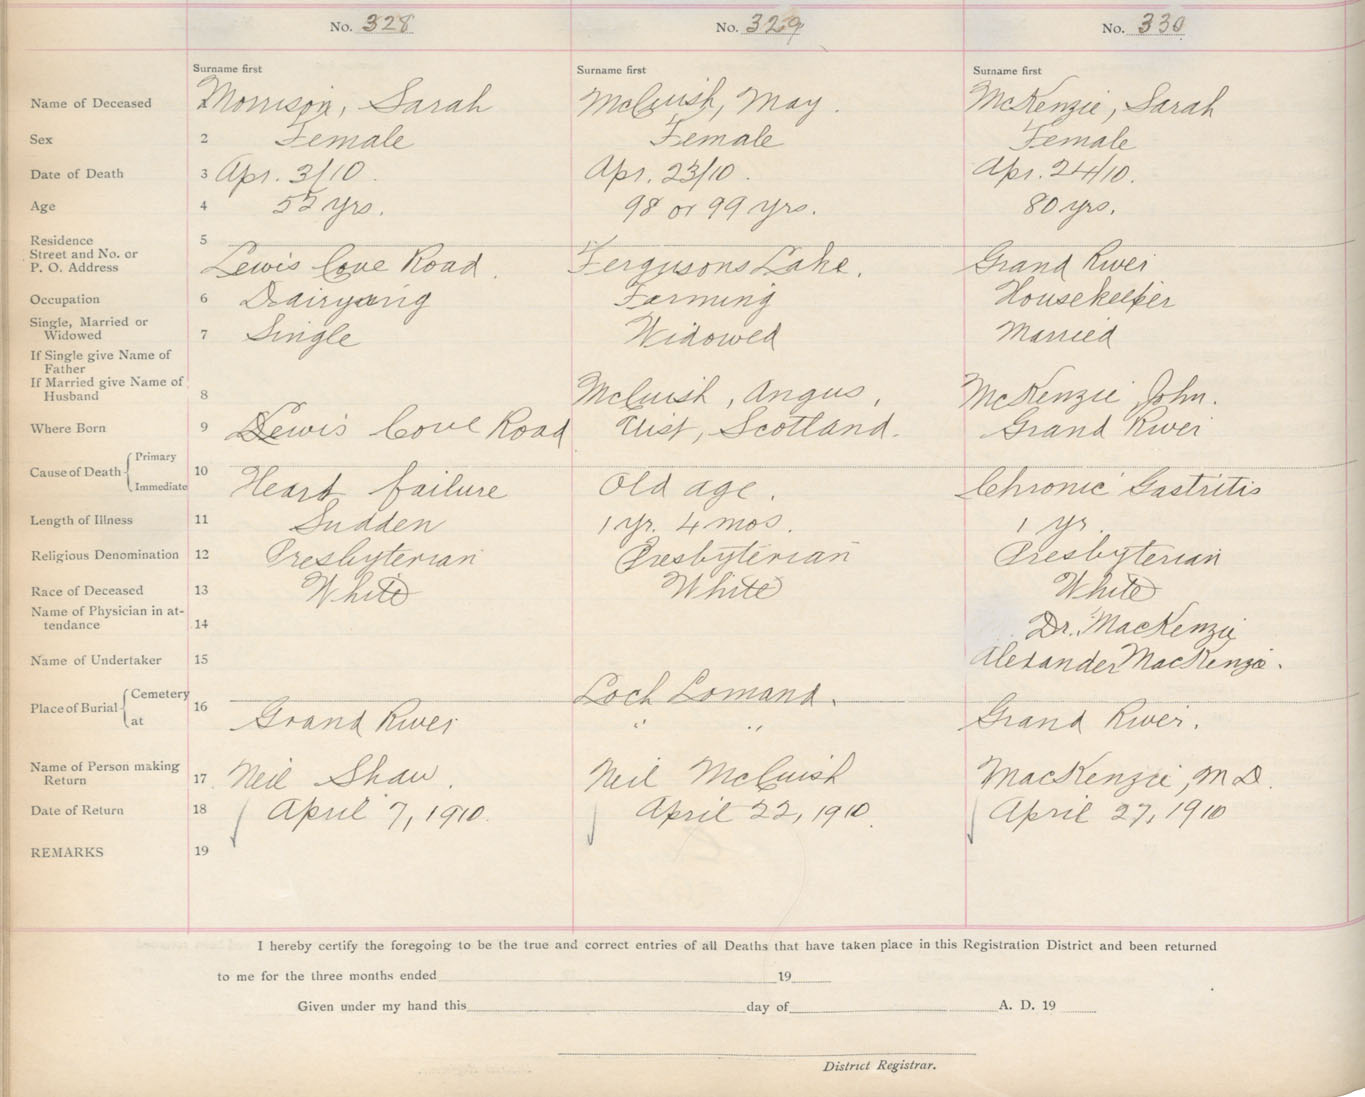 No. 328 No. 329 No. 330
Surname first Surname first Surname first
Name of Deceased 1 Morrison, Sarah McCuish, May. McKenzie, Sarah
Sex 2 Female Female Female
Date of Death 3 Apr. 3/10. Apr. 23/10. Apr. 24/10.
Age 4 52 yrs. 98 or 99 yrs. 80 yrs.
Residence 5
Street and No. or
P. O. Address Lewis Cove Road. Fergusons Lake. Grand River
Occupation 6 Dairying Farming Housekeeper
Single, Married or
Widowed 7 Single Widowed Married
If Single give Name of
Father
If Married give Name of
Husband 8 McCuish, Angus, McKenzie, John.
Where Born 9 Lewis Cove Road Uist, Scotland. Grand River
Cause of Death Primary 10
Immediate Heart failure Old age. Chronic Gastritis
Length of Illness 11 Sudden 1 yr. 4 mos. 1 yr.
Religious Denomination 12 Presbyterian Presbyterian Presbyterian
Race of Deceased 13 White White White
Name of Physician in at-
tendance 14 Dr. MacKenzie
Name of Undertaker 15 Alexander MacKenzie.
Place of Burial Cemetery 16 Loch Lomand.
at Grand River " " Grand River.
Name of Person making
Return 17 Neil Shaw. Neil McCuish MacKenzie, M.D.
Date of Return 18 April 7, 1910. April 22, 1910. April 27, 1910
REMARKS 19
I hereby certify the foregoing to be the true and correct entries of all Deaths that have taken place in this Registration District and been returned
to me for the three months ended 19
Given under my hand this day of A. D. 19
District Registrar.